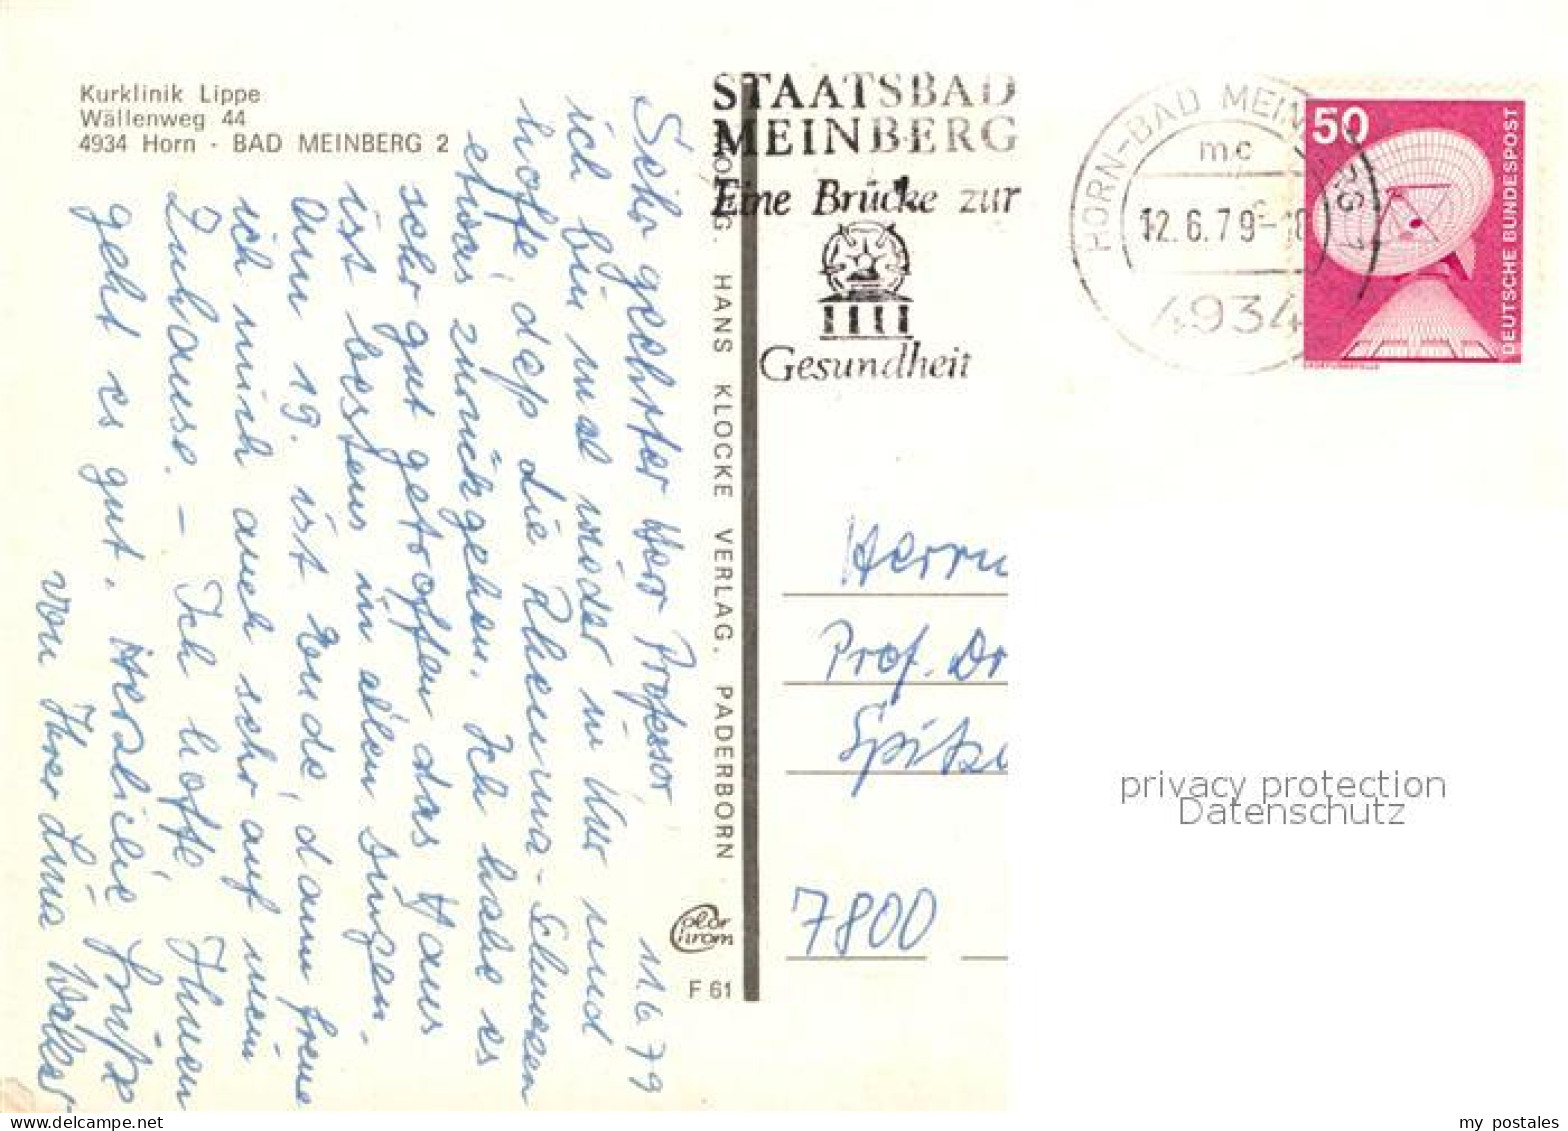 Kurklinik Lippe
Wällenweg 44
4934 Horn - BAD MEINBERG 2
11.6.79
Sehr geehrter Herr Professor,
ich bin mal wieder in Kur und
hoffe, daß die Rheuma-Schmerzen
etwas zurückgehen. Ich habe es
sehr gut getroffen das Haus
ist bestens in allen Dingen.
Am 19. ist Ende, dann freue
ich mich auch sehr auf mein
Zuhause. – Ich hoffe, Ihnen
geht es gut. Herzliche Grüße
von Ihrer Lina
HANS KLOCKE VERLAG, PADERBORN
Color
Chrom
F 61
STAATSBAD
MEINBERG
Eine Brücke zur
Gesundheit
HORN-BAD MEINBERG 1
mc
12.6.79-18
4934
50
DEUTSCHE BUNDESPOST
Herrn
Prof. Dr
Spitz
7800
privacy protection
Datenschutz
my postales